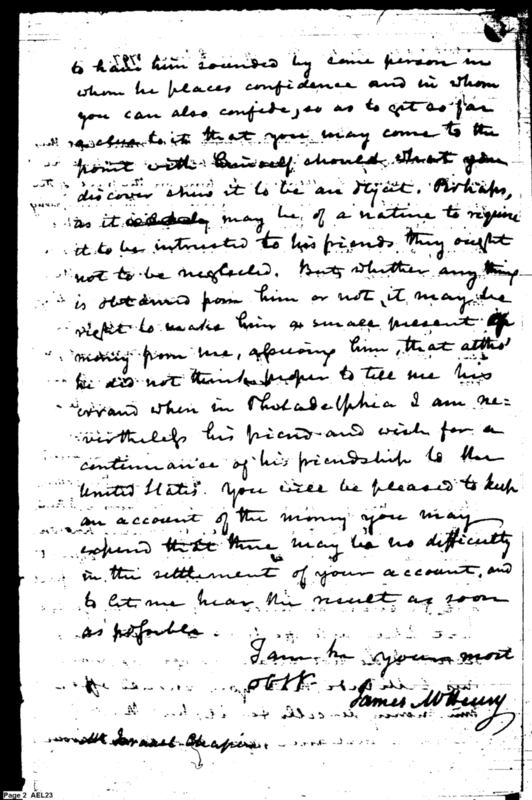 to have him sounded by some person in
whom he places confidence and in whom
you can also confide, so as to get so far
a clue to it that you may come to the
point with himself should what you
discover shew it to be an object. Perhaps,
as it may be of a nature to require
it to be intrusted to his friends they ought
not to be neglected. But, whether any thing
is obtained from him or not, it may be
right to make him a small present of
money from me, assuring him, that altho'
he did not think proper to tell me his
errand when in Philadelphia I am ne=
vertheless his friend and wish for a
continuance of his friendship to the
United States. You will be pleased to keep
an account of the money you may
expend that there may be no difficulty
in the settlement of your account, and
to let me hear the result as soon
as possible.
I am, your most
ob St
James McHenry
Israel Chapin.
Page 2 AEL23